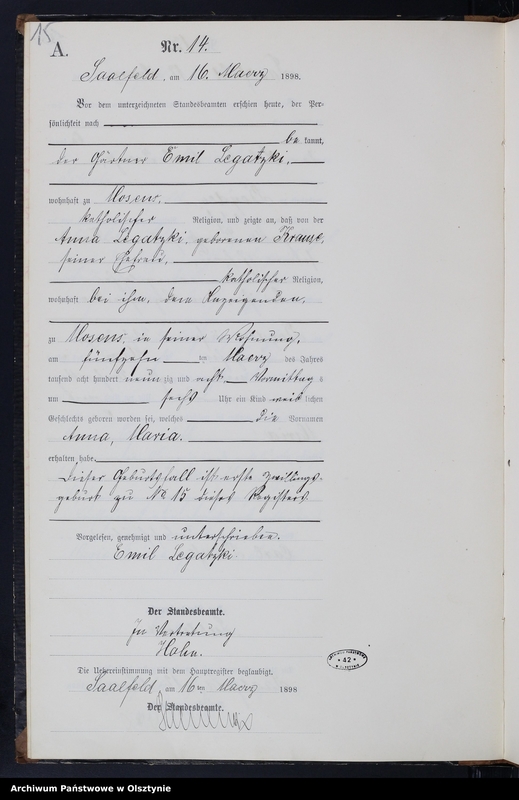 15
A.
Nr. 14.
Saalfeld, am 16. Maerz 1898.
Vor dem unterzeichneten Standesbeamten erschien heute, der Per-
sönlichkeit nach
be kannt,
der Gärtner Emil Legatzki,
wohnhaft zu Mosens,
katholischer Religion, und zeigte an, daß von der
Anna Legatzki, geborenen Krause,
seiner Ehefrau,
katholischer Religion,
wohnhaft bei ihm, dem Anzeigenden,
zu Mosens, in seiner Wohnung,
am fünfzehn ten Maerz des Jahres
tausend acht hundert neun zig und acht Vormittag s
um sechs Uhr ein Kind weib lichen
Geschlechts geboren worden sei, welches die Vornamen
Anna, Maria.
erhalten habe.
Dieser Geburtsfall ist erste Zwillings-
geburt zu No 15 dieses Registers
Vorgelesen, genehmigt und unterschrieben.
Emil Legatzki
Der Standesbeamte.
In Vertretung
Hahn.
Die Uebereinstimmung mit dem Hauptregister beglaubigt.
Saalfeld, am 16ten Maerz 1898
Der Standesbeamte.
* 42 *
Archiwum Państwowe w Olsztynie